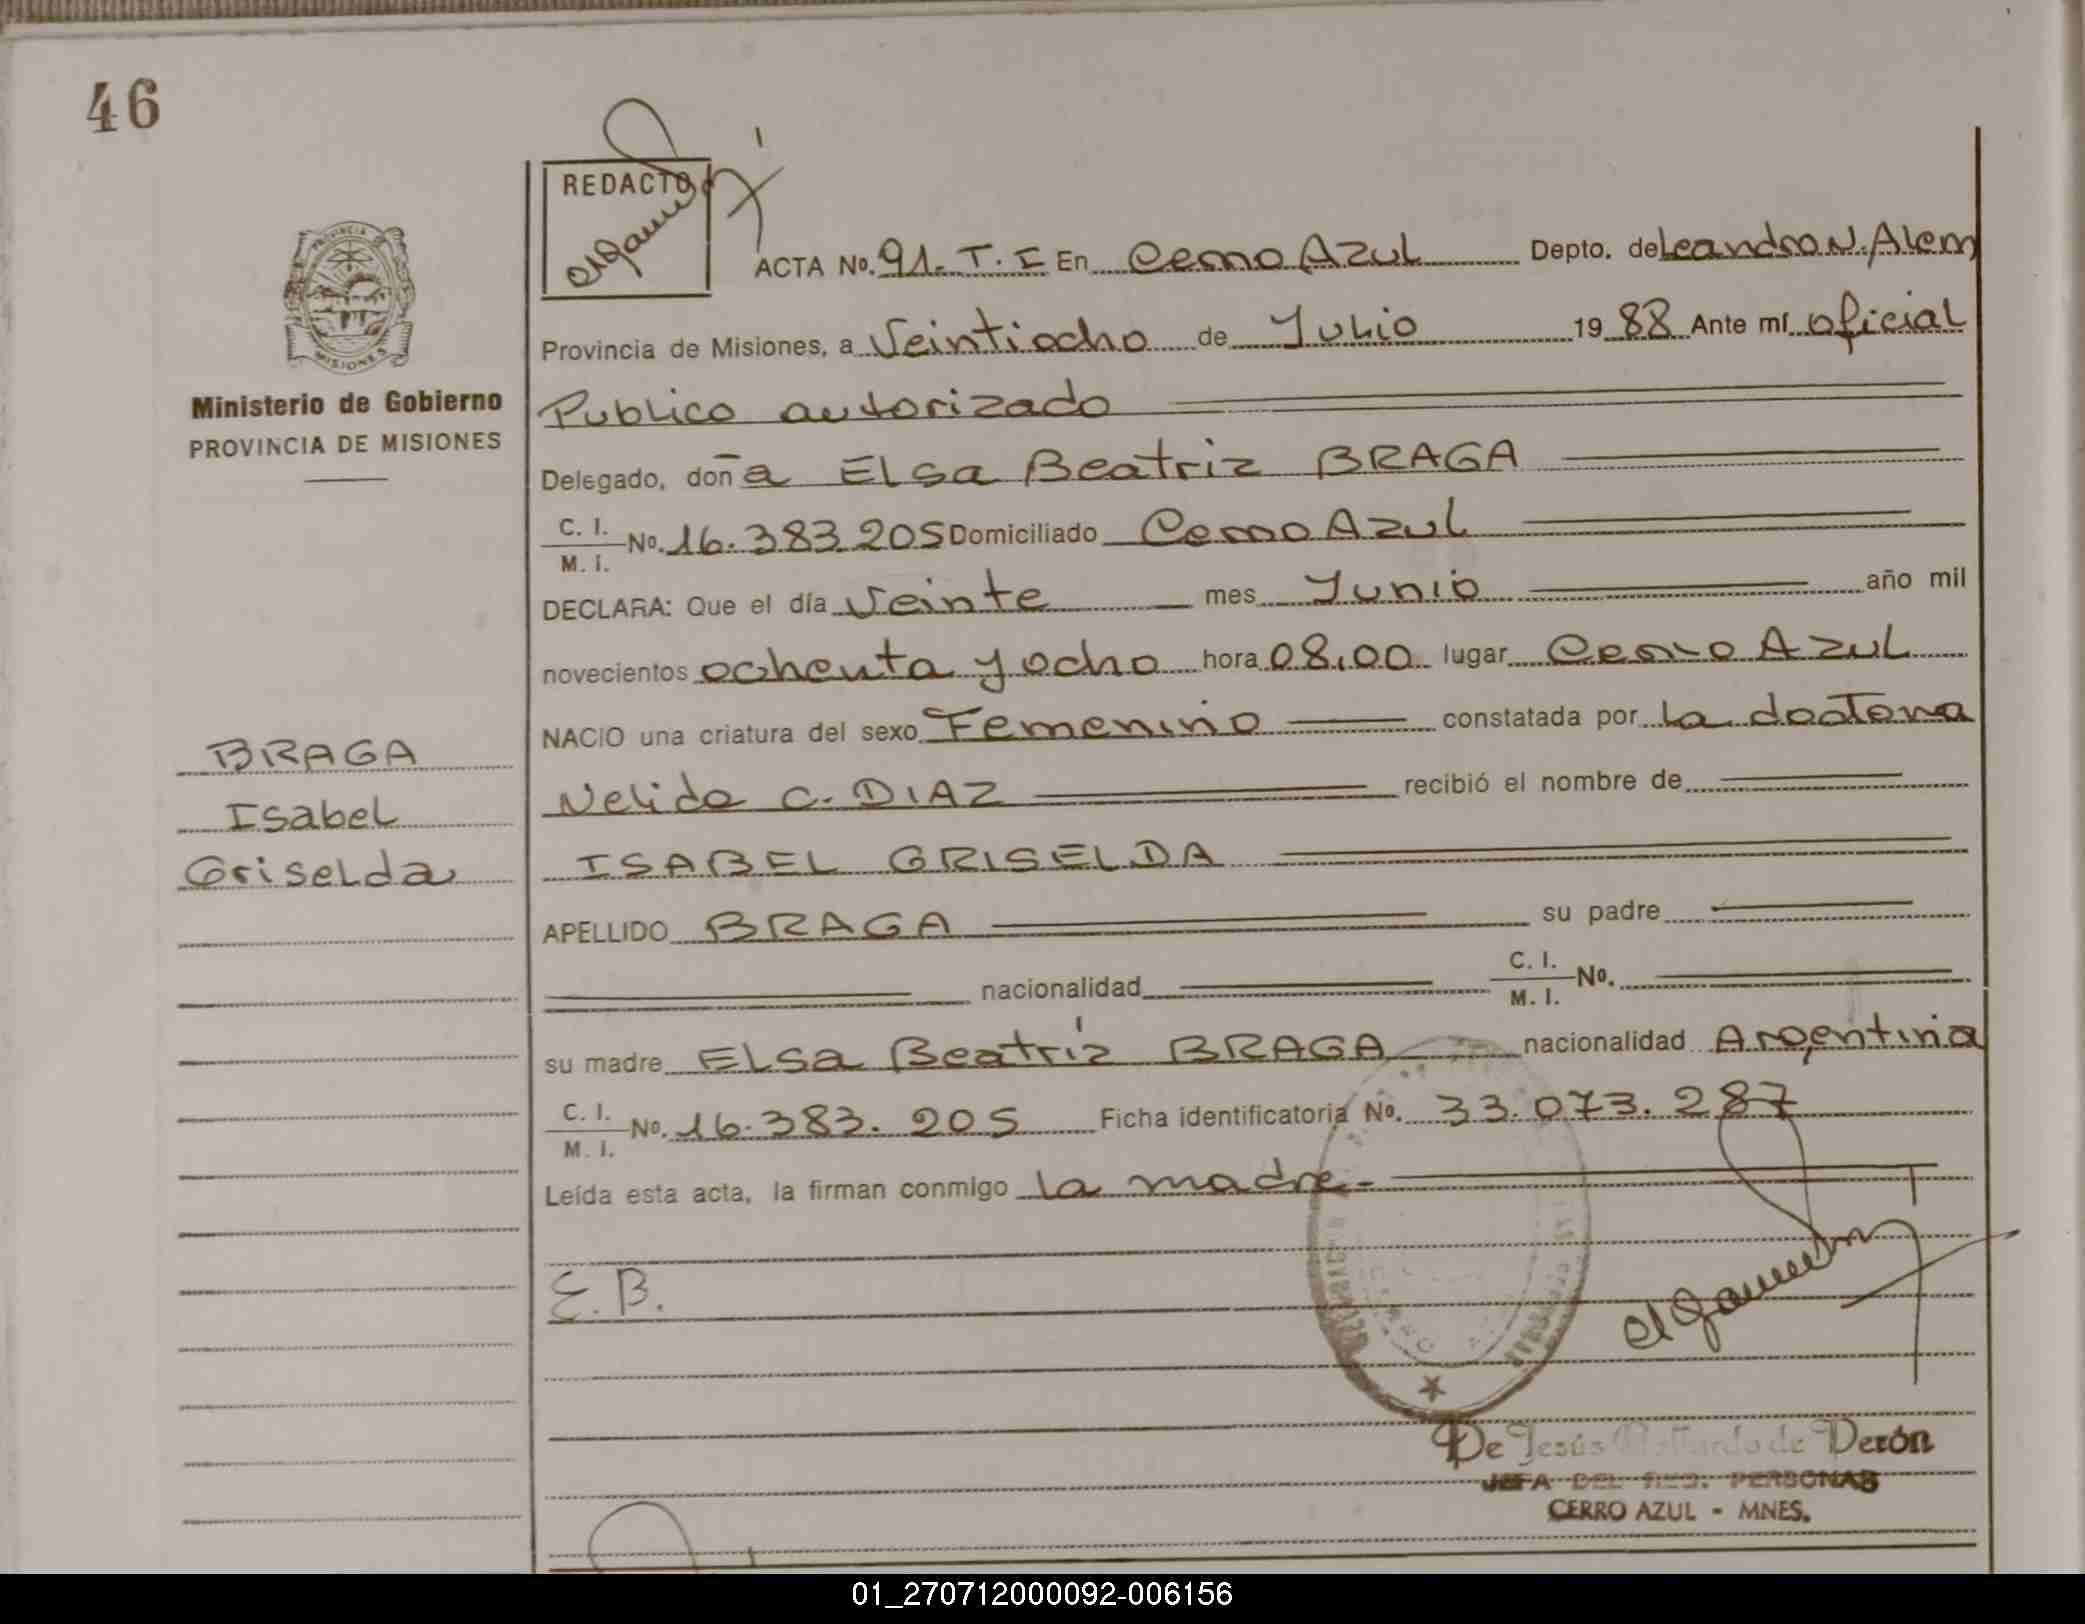 46
REDACTO
PROVINCIA DE
MISIONES
Ministerio de Gobierno
PROVINCIA DE MISIONES
ACTA No. 91. T. I En Cerro Azul Depto. de Leandro N. Alem
Provincia de Misiones, a Veintiocho de Junio 19 88 Ante mí oficial
Publico autorizado
Delegado, doña Elsa Beatriz BRAGA
C. I.
M. I. No. 16.383.205 Domiciliado Cerro Azul
DECLARA: Que el día Veinte mes Junio año mil
novecientos ochenta y ocho hora 08,00 lugar Cerro Azul
NACIO una criatura del sexo Femenino constatada por la doctora
Nelida C. DIAZ recibió el nombre de
ISABEL GRISELDA
APELLIDO BRAGA su padre
nacionalidad C. I.
M. I. No.
su madre Elsa Beatriz BRAGA nacionalidad Argentina
C. I.
M. I. No. 16.383.205 Ficha identificatoria No. 33.073.287
Leída esta acta, la firman conmigo la madre.-
E. B.
BRAGA
Isabel
Griselda
De Jesús de Perón
JEFA DEL REG. PERSONAS
CERRO AZUL - MNES.
01_270712000092-006156